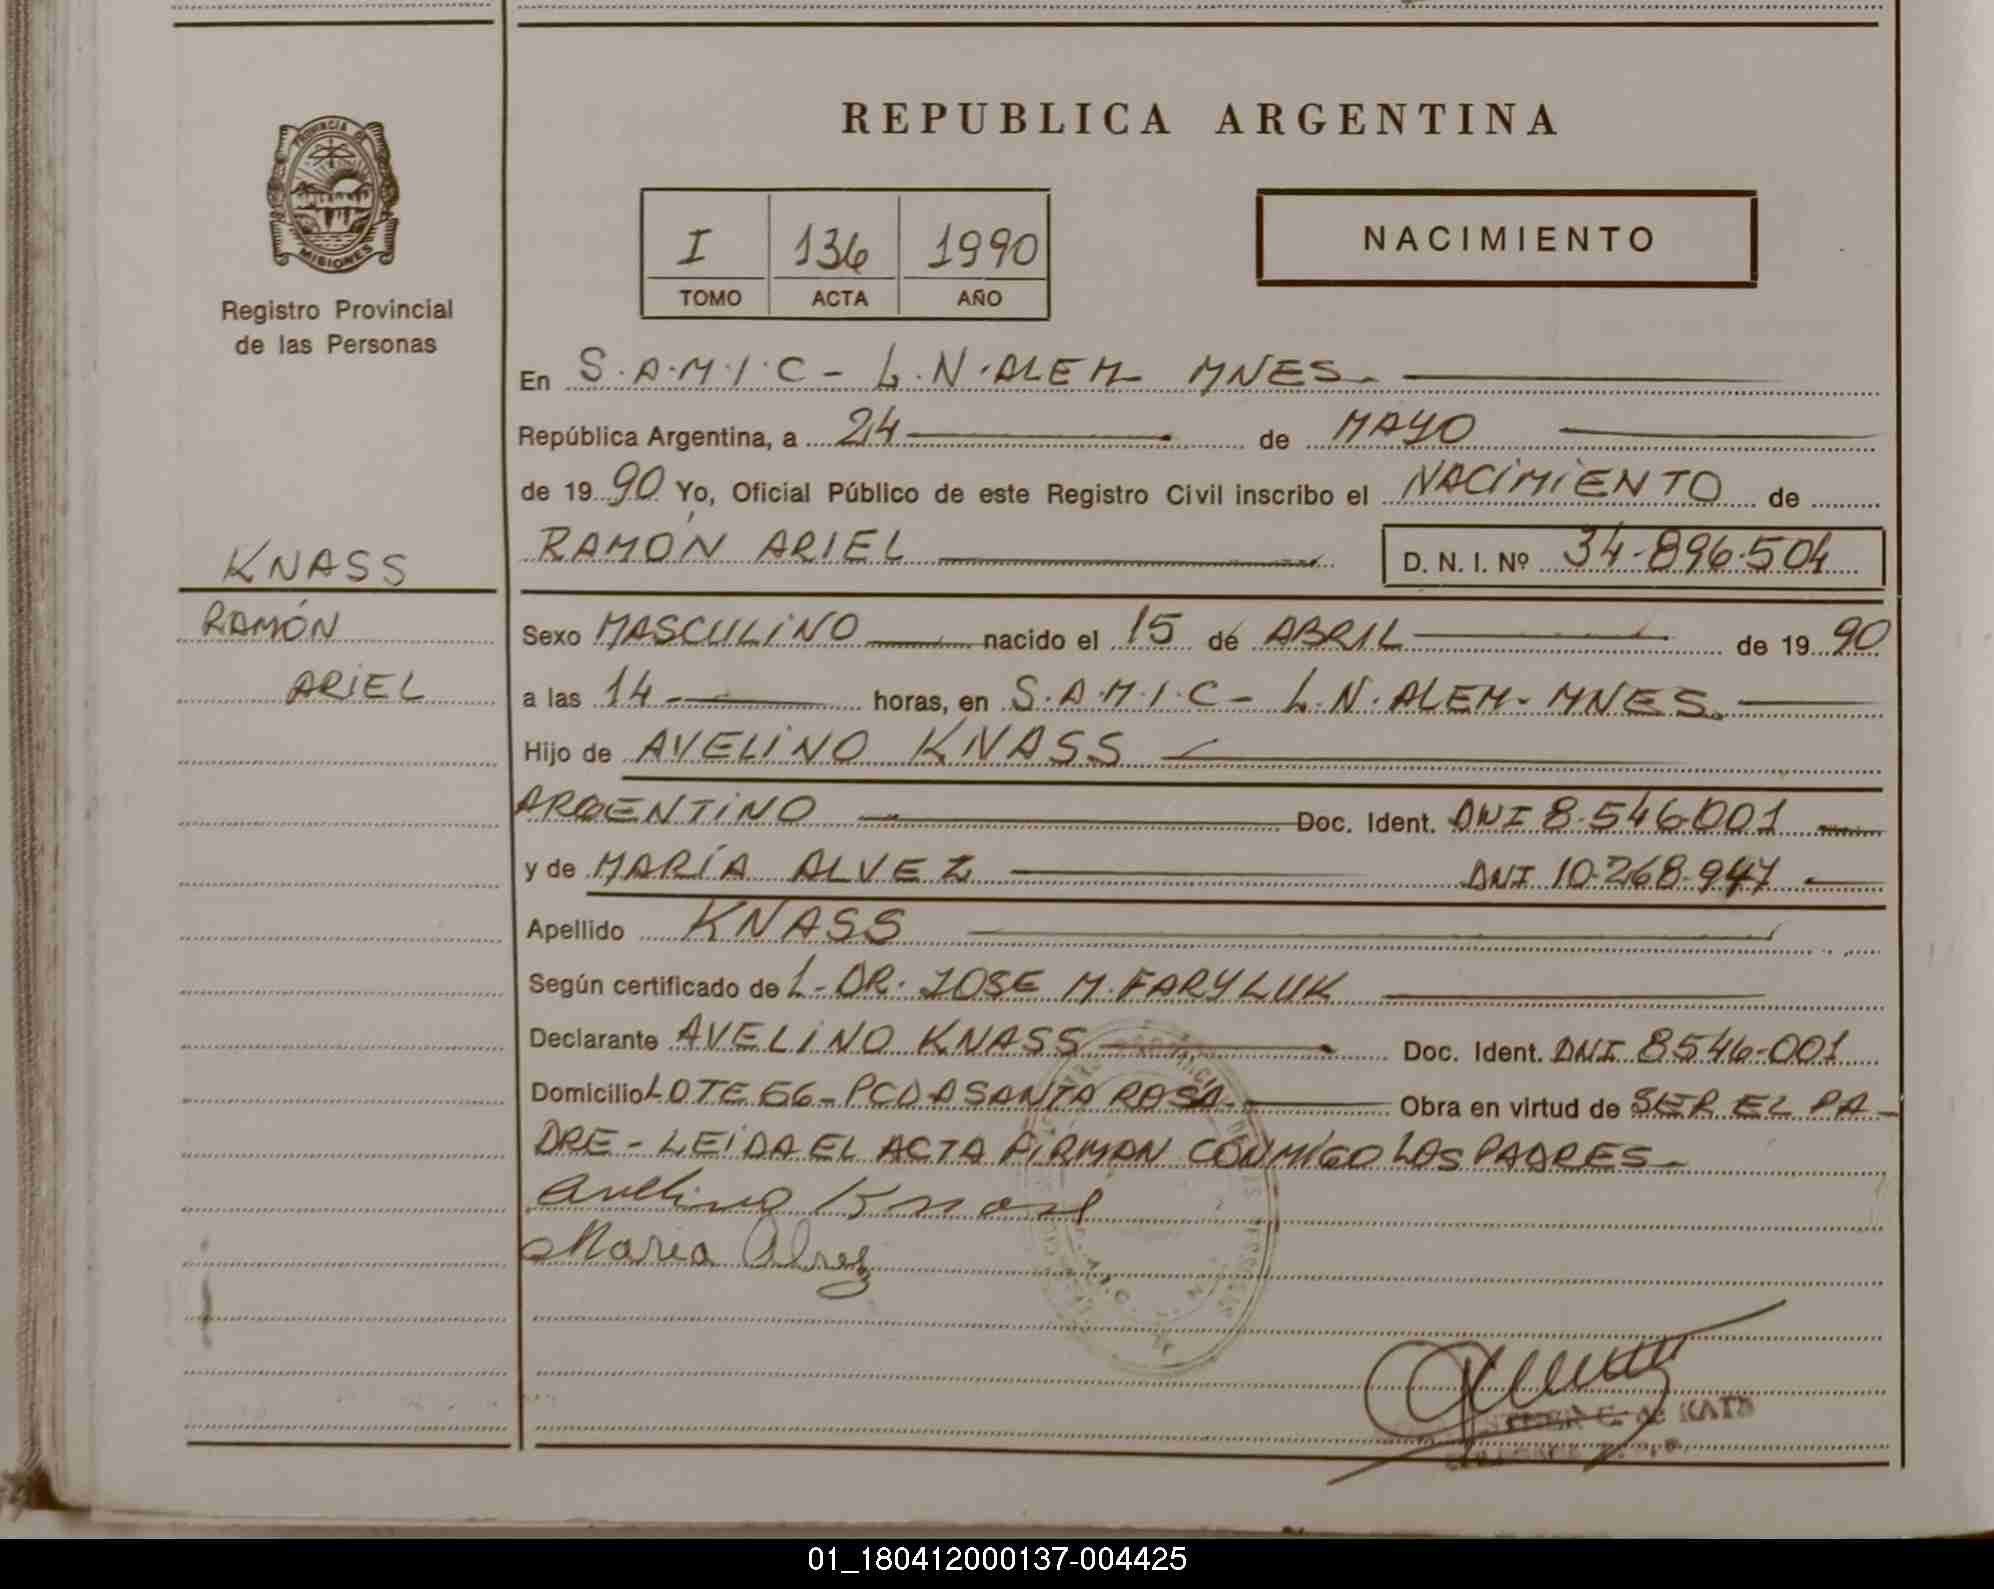 REPUBLICA ARGENTINA
PROVINCIA DE
MISIONES
Registro Provincial
de las Personas
I 136 1990
TOMO ACTA AÑO
NACIMIENTO
En S.A.M.I.C - L.N.ALEM MNES.
República Argentina, a 24 de MAYO
de 1990 Yo, Oficial Público de este Registro Civil inscribo el NACIMIENTO de
RAMÓN ARIEL D. N. I. Nº 34-896-504
KNASS
RAMÓN
ARIEL
Sexo MASCULINO nacido el 15 de ABRIL de 1990
a las 14 horas, en S.A.M.I.C - L.N.ALEM - MNES.
Hijo de AVELINO KNASS
ARGENTINO Doc. Ident. DNI 8-546-001
y de MARÍA ALVEZ DNI 10-268-947
Apellido KNASS
Según certificado de L- DR. JOSE M. FARYLUK
Declarante AVELINO KNASS Doc. Ident. DNI 8546-001
Domicilio LOTE 66 - PCDA SANTA ROSA- Obra en virtud de SER EL PA-
DRE - LEIDA EL ACTA FIRMAN CONMIGO LOS PADRES-
Avelino Knass
Maria Alvez
C. de KATZ
01_180412000137-004425